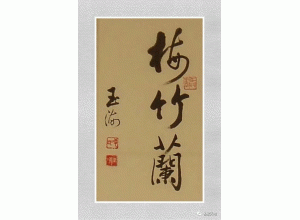 梅竹蘭
玉海